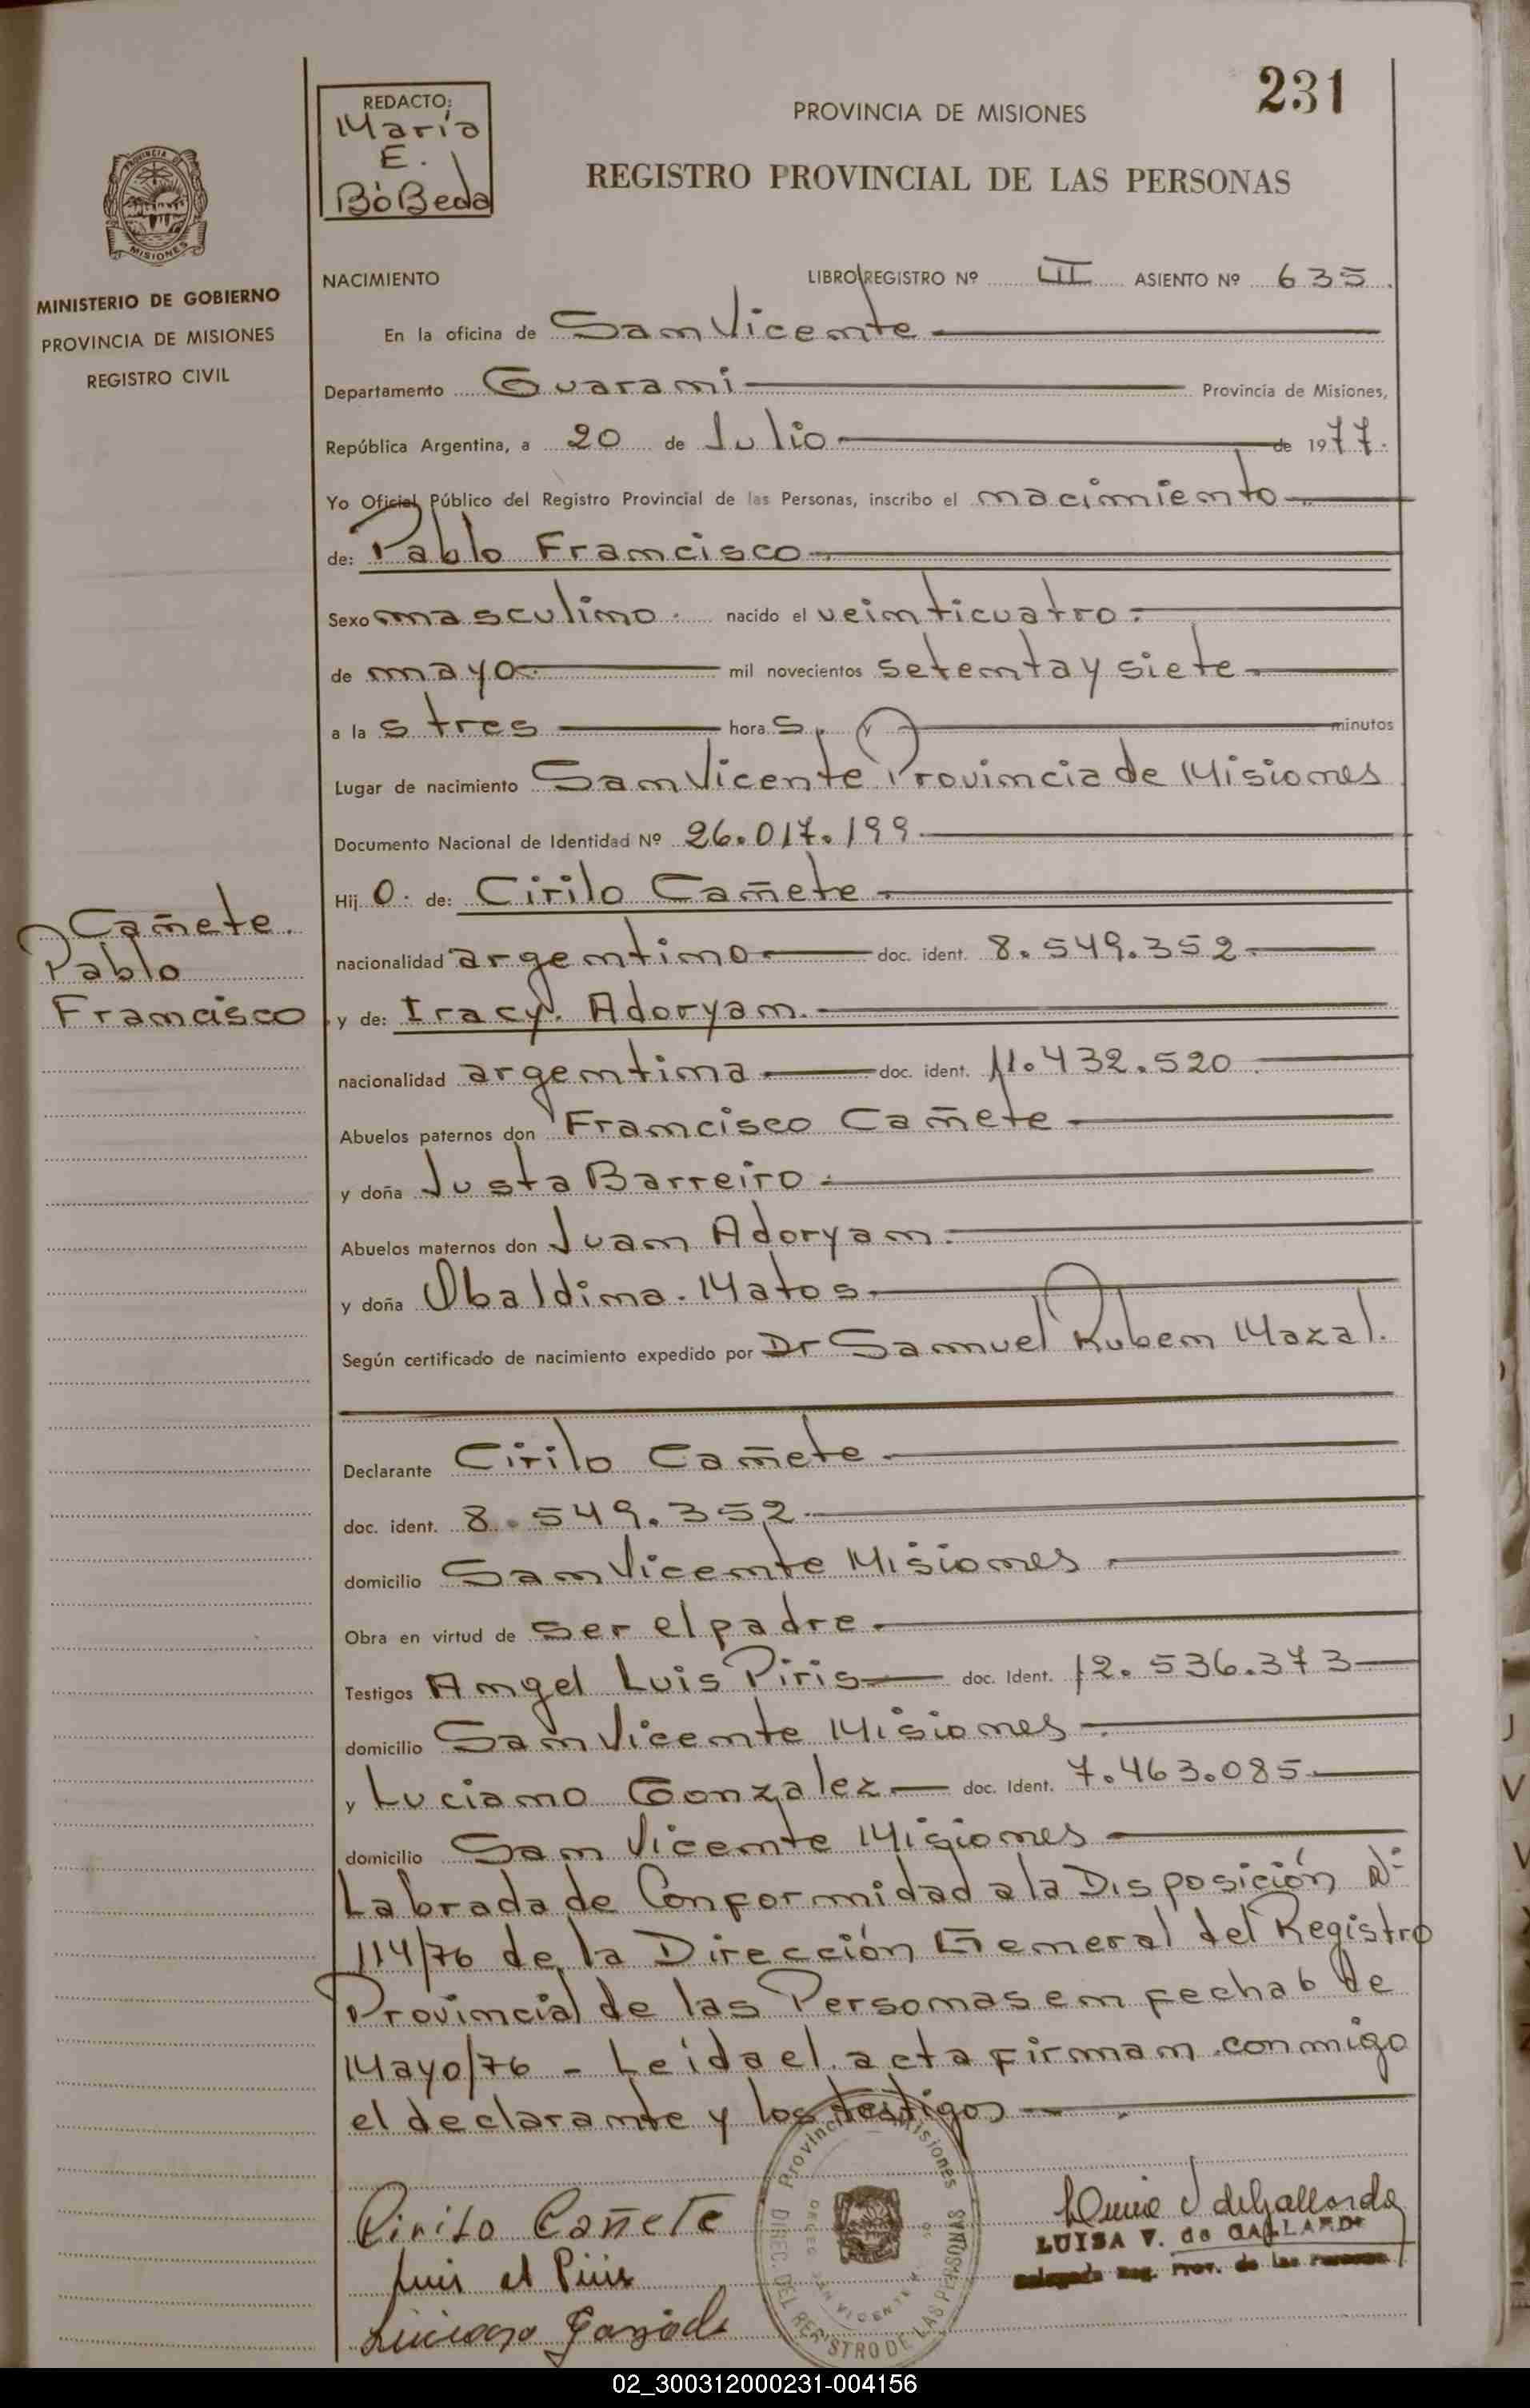 231
REDACTO:
María
E.
BòBeda
PROVINCIA DE MISIONES
REGISTRO PROVINCIAL DE LAS PERSONAS
PROVINCIA DE
MISIONES
MINISTERIO DE GOBIERNO
PROVINCIA DE MISIONES
REGISTRO CIVIL
NACIMIENTO LIBRO REGISTRO Nº III ASIENTO Nº 635
En la oficina de San Vicente
Departamento Guarani Provincia de Misiones,
República Argentina, a 20 de Julio de 1977.
Yo Oficial Público del Registro Provincial de las Personas, inscribo el nacimiento
de: Pablo Francisco
Sexo masculino. nacido el veinticuatro.
de mayo. mil novecientos setenta y siete.
a la s tres hora s, y minutos
Lugar de nacimiento San Vicente Provincia de Misiones
Documento Nacional de Identidad Nº 26.017.199
Hij o. de: Cirilo Cañete.
nacionalidad argentino doc. ident. 8.549.352.
y de: Iracy. Adoryan.
nacionalidad argentina doc. ident. 11.432.520
Cañete.
Pablo
Francisco
Abuelos paternos don Francisco Cañete
y doña Justa Barreiro.
Abuelos maternos don Juan Adoryan.
y doña Ubaldina. Matos.
Según certificado de nacimiento expedido por Dr Samuel Ruben Mazal.
Declarante Cirilo Cañete.
doc. ident. 8.549.352.
domicilio San Vicente Misiones.
Obra en virtud de ser el padre.
Testigos Angel Luis Piris doc. Ident. 12.536.373
domicilio San Vicente Misiones.
y Luciano Gonzalez doc. Ident. 7.463.085.
domicilio San Vicente Misiones
Labrada de Conformidad a la Disposición Nº
114/76 de la Dirección General del Registro
Provincial de las Personas en fecha 6 de
Mayo/76 - Leída el acta firman conmigo
el declarante y los testigos
Cirilo Cañete
LUISA V. de GALLARDO
Delegada Reg. Prov. de las Personas
Provincia Misiones
DIREC. DEL REGISTRO DE LAS PERSONAS
SAN VICENTE
02_300312000231-004156